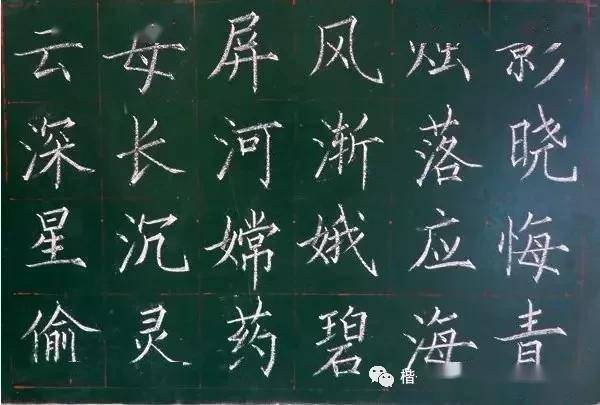 云母屏风烛影
深长河渐落晓
星沉嫦娥应悔
偷灵药碧海青
楷